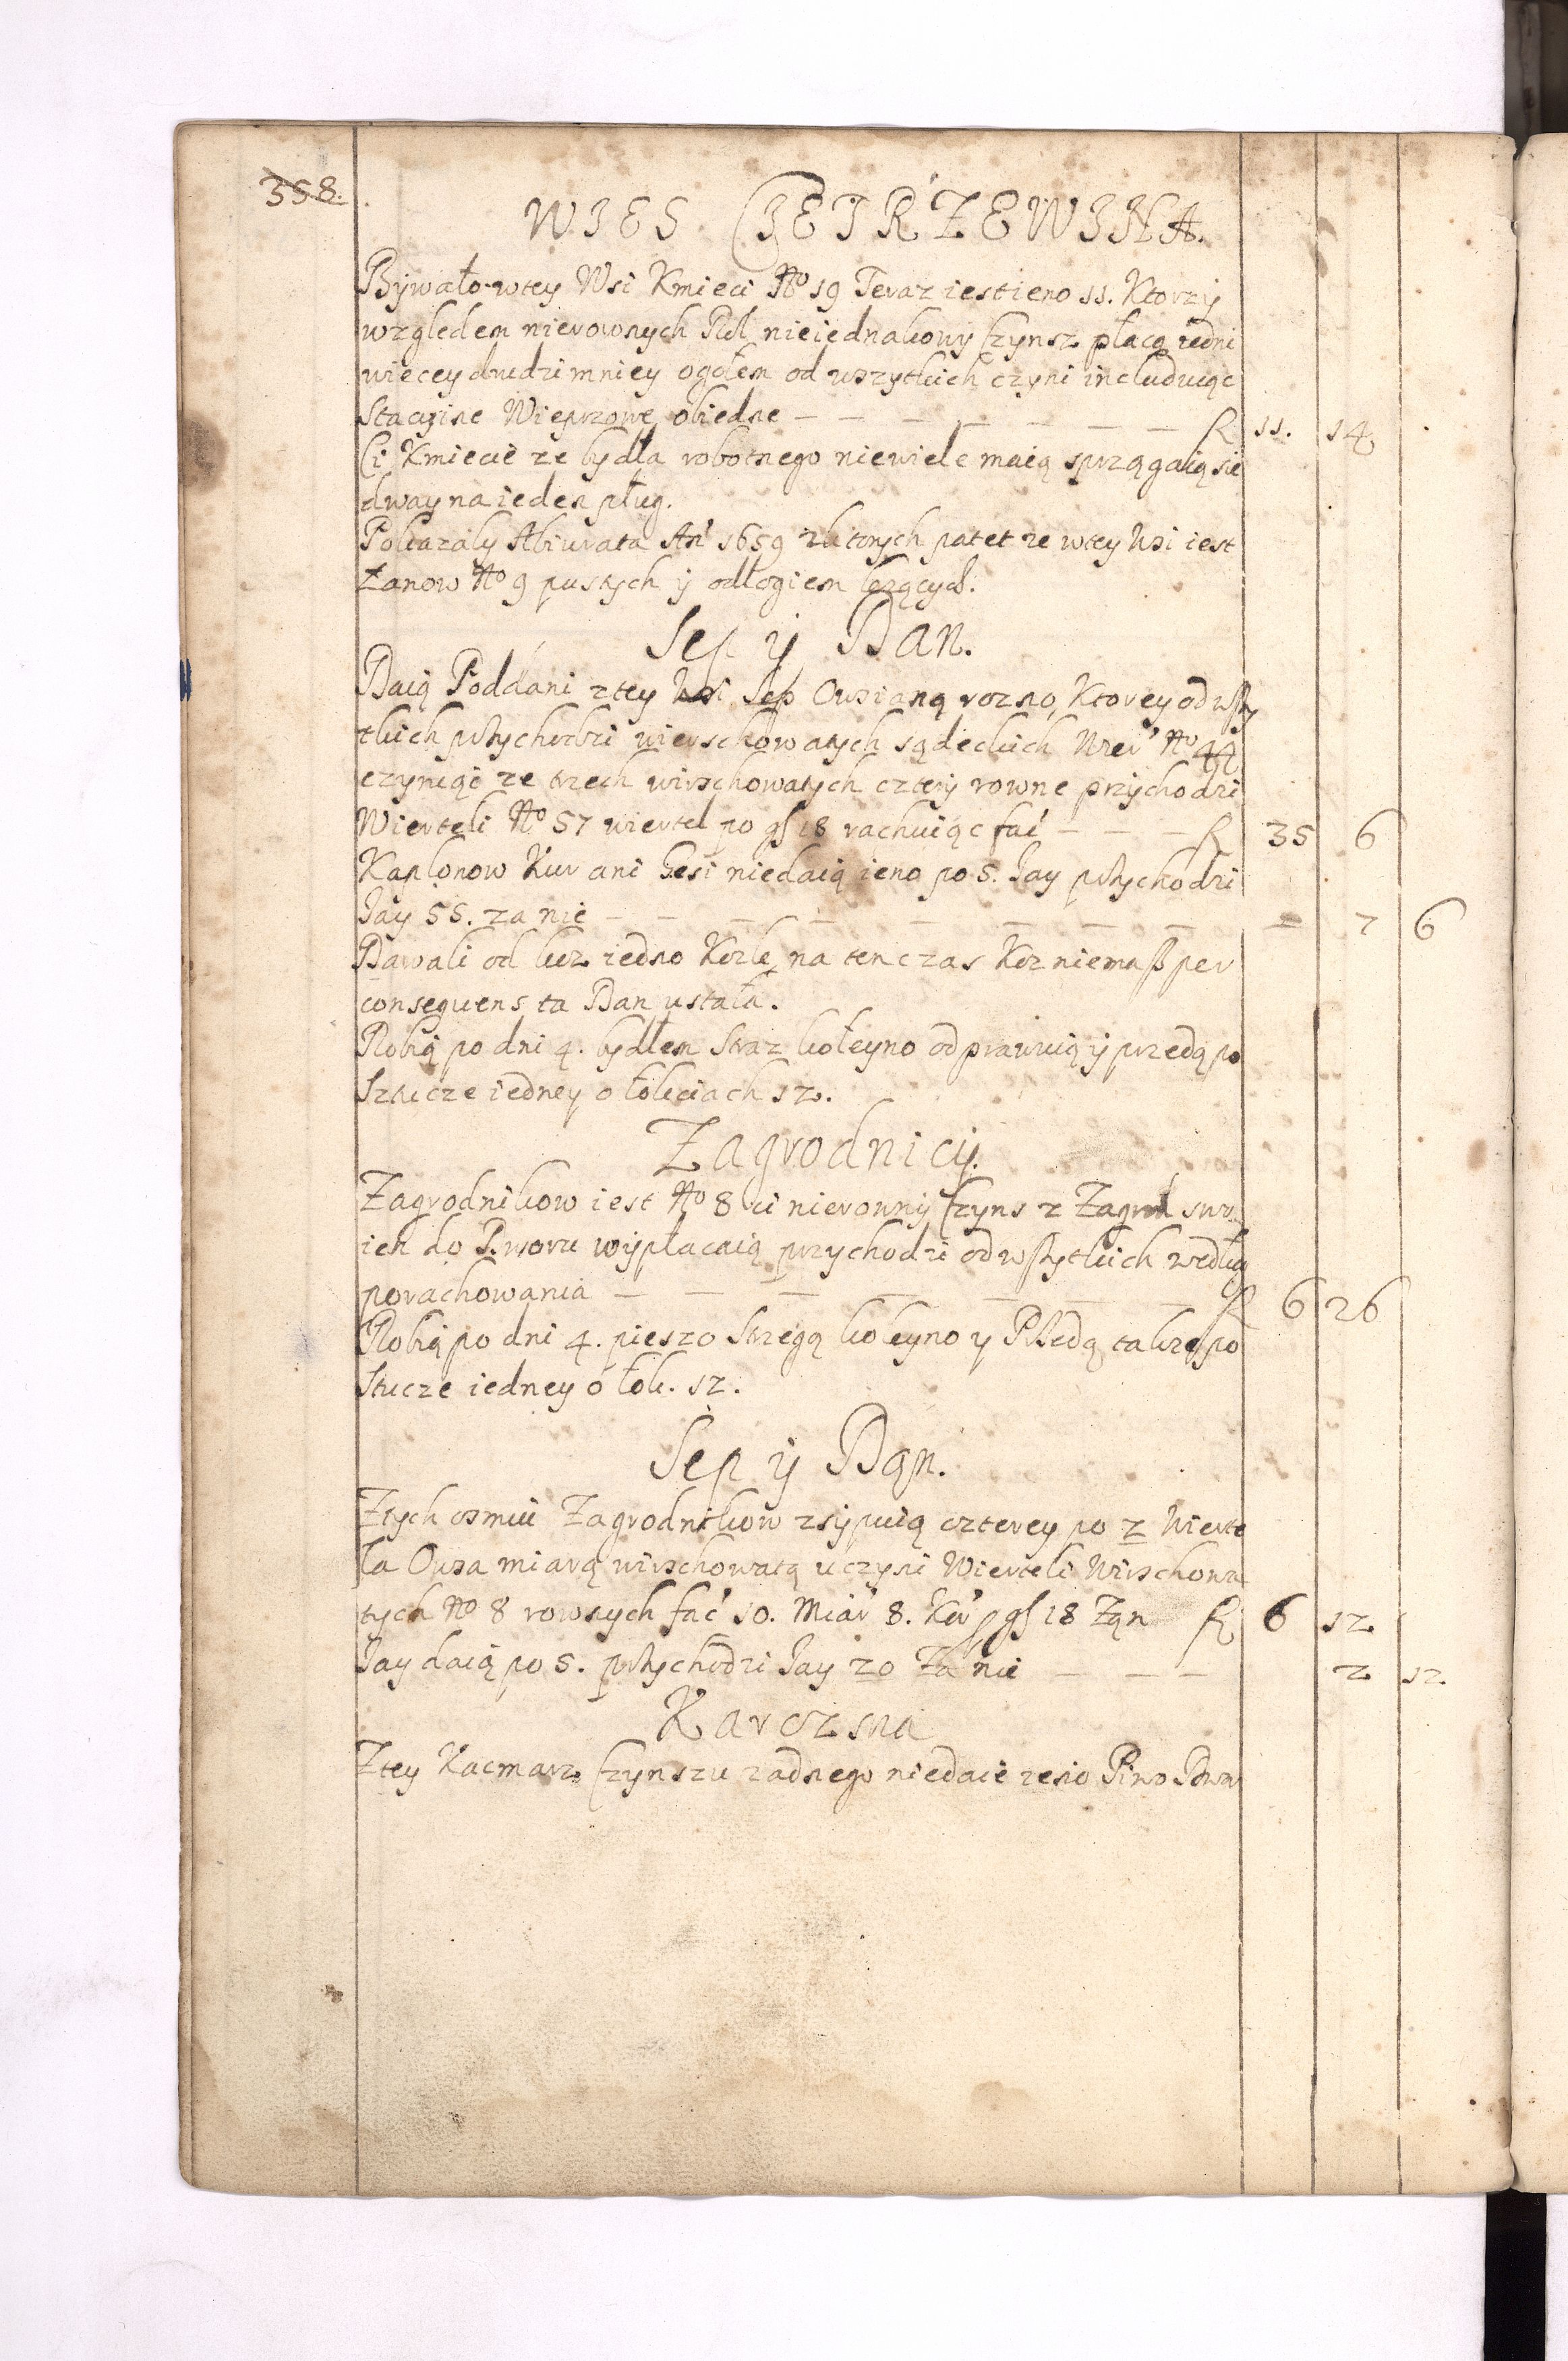 358.
WIES CIETRZEWINA.
Bywało wtey Wsi Kmieci No 19 Teraz iest ieno 11. Ktorzÿ
wzgledem nierownych Rol nieiednakowÿ Czynsz płacą iedni
wiecey drudzi mniey ogołem od wszytkich czyni includuiąc
Stacyine Wieprzowe obiedne — — — — — — — R 11. 14
Ci Kmiecie ze bydła robotnego niewiele maią sprzągaią sie
dway na ieden pług.
Pokazały Abiurata An 1659 zktorych patet ze wtey Wsi iest
Łanow No 9 pustych ÿ odłogiem lezących.
Sep ÿ Dan.
Daią Poddani ztey Wsi Sep Owsianą rozno, Ktorey od wszy
tkich przychodzi wierschowatych sądeckich No 44
czyniąc ze trzech wirschowatych cztery rowne przychodzi
Wierteli No 57 wiertel po gs 18 rachuiąc fać — — — R 35 6
Kapłonow Kur ani Gesi niedaią ieno po 5. Jay przychodzi
Jay 55. za nie — — — — — — — — — 7 6
Dawali od koz iedno Kozle na ten czas Koz niemasz per
consequens ta Dan ustała.
Robią po dni 4. bydłem Straz koleyno odprawuią ÿ przedą po
Sztucze iedney o łokciach 12.
Zagrodnicÿ.
Zagrodnikow iest No 8 ci nierownÿ Czyns z Zagrod swo
ich do Dworu wÿpłacaią przychodzi od wszytkich wedlug
porachowania — — — — — — — R 6 26
Robią po dni 4. pieszo Strzegą koleyno y Przedą takze po
Stucze iedney o łok. 12.
Sep ÿ Dan.
Ztych osmiu Zagrodnikow zsÿpuią czterey po 2 Wierte
la Owsa miarą wirschowatą uczyni Wierteli Wirschowa
tych No 8 rownych fać 10. Miar 8. gs 18 R 6 12
Jay daią po 5. przychodzi Jay 20 Za nie — — — 2 12
Karczma
Ztey Kacmarz Czynszu zadnego niedaie ieno Piwo